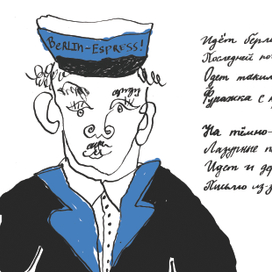 BERLIN-ESPRESS!
Идёт берли
Последний по
Одет таким
Фуражка с
На тёмно-
Лазурные п
Идет и де
Письмо из-